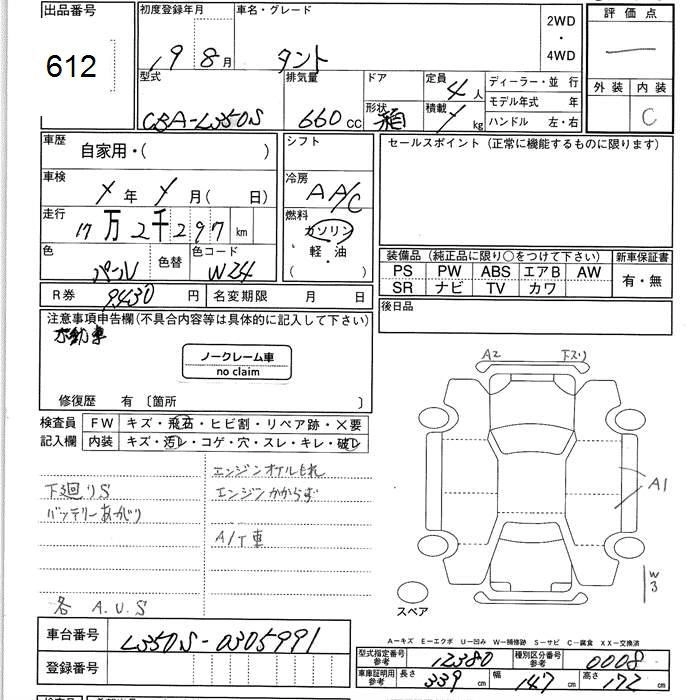 出品番号 初度登録年月 車名・グレード 2WD ・ 4WD 評価点
612 19 8月 タント
型式 排気量 ドア 定員 4人 ディーラー・並行 外装 内装
CBA-L350S 660cc 形状 箱 積載 kg モデル年式 年 C
ハンドル 左・右
車歴 自家用・( ) シフト セールスポイント(正常に機能するものに限ります)
車検 年 月( 日) 冷房 AA/C
走行 17万2千297km 燃料 ガソリン
軽・油
( )
色 パール 色替 色コード W24
装備品(純正品に限り○をつけて下さい) 新車保証書
PS PW ABS エアB AW 有・無
SR ナビ TV カワ
R券 9430円 名変期限 月 日 後日品
注意事項申告欄(不具合内容等は具体的に記入して下さい)
不動車
ノークレーム車
no claim
修復歴 有 〔箇所 〕
検査員 FW キズ・飛石・ヒビ割・リペア跡・×要
記入欄 内装 キズ・汚レ・コゲ・穴・スレ・キレ・破レ
A2 下スリ
エンジンオイルもれ
下廻りS エンジンかからず
バッテリーあがり
A/T車
A1
W3
各 A.U.S
スペア
A-キズ E-エクボ U-凹み W-補修跡 S-サビ C-腐食 XX-交換済
車台番号 L350S-0305991
型式指定番号 参考 12380 種別区分番号 参考 0008
登録番号
車庫証明用 参考 長さ 339cm 幅 147cm 高さ 172cm